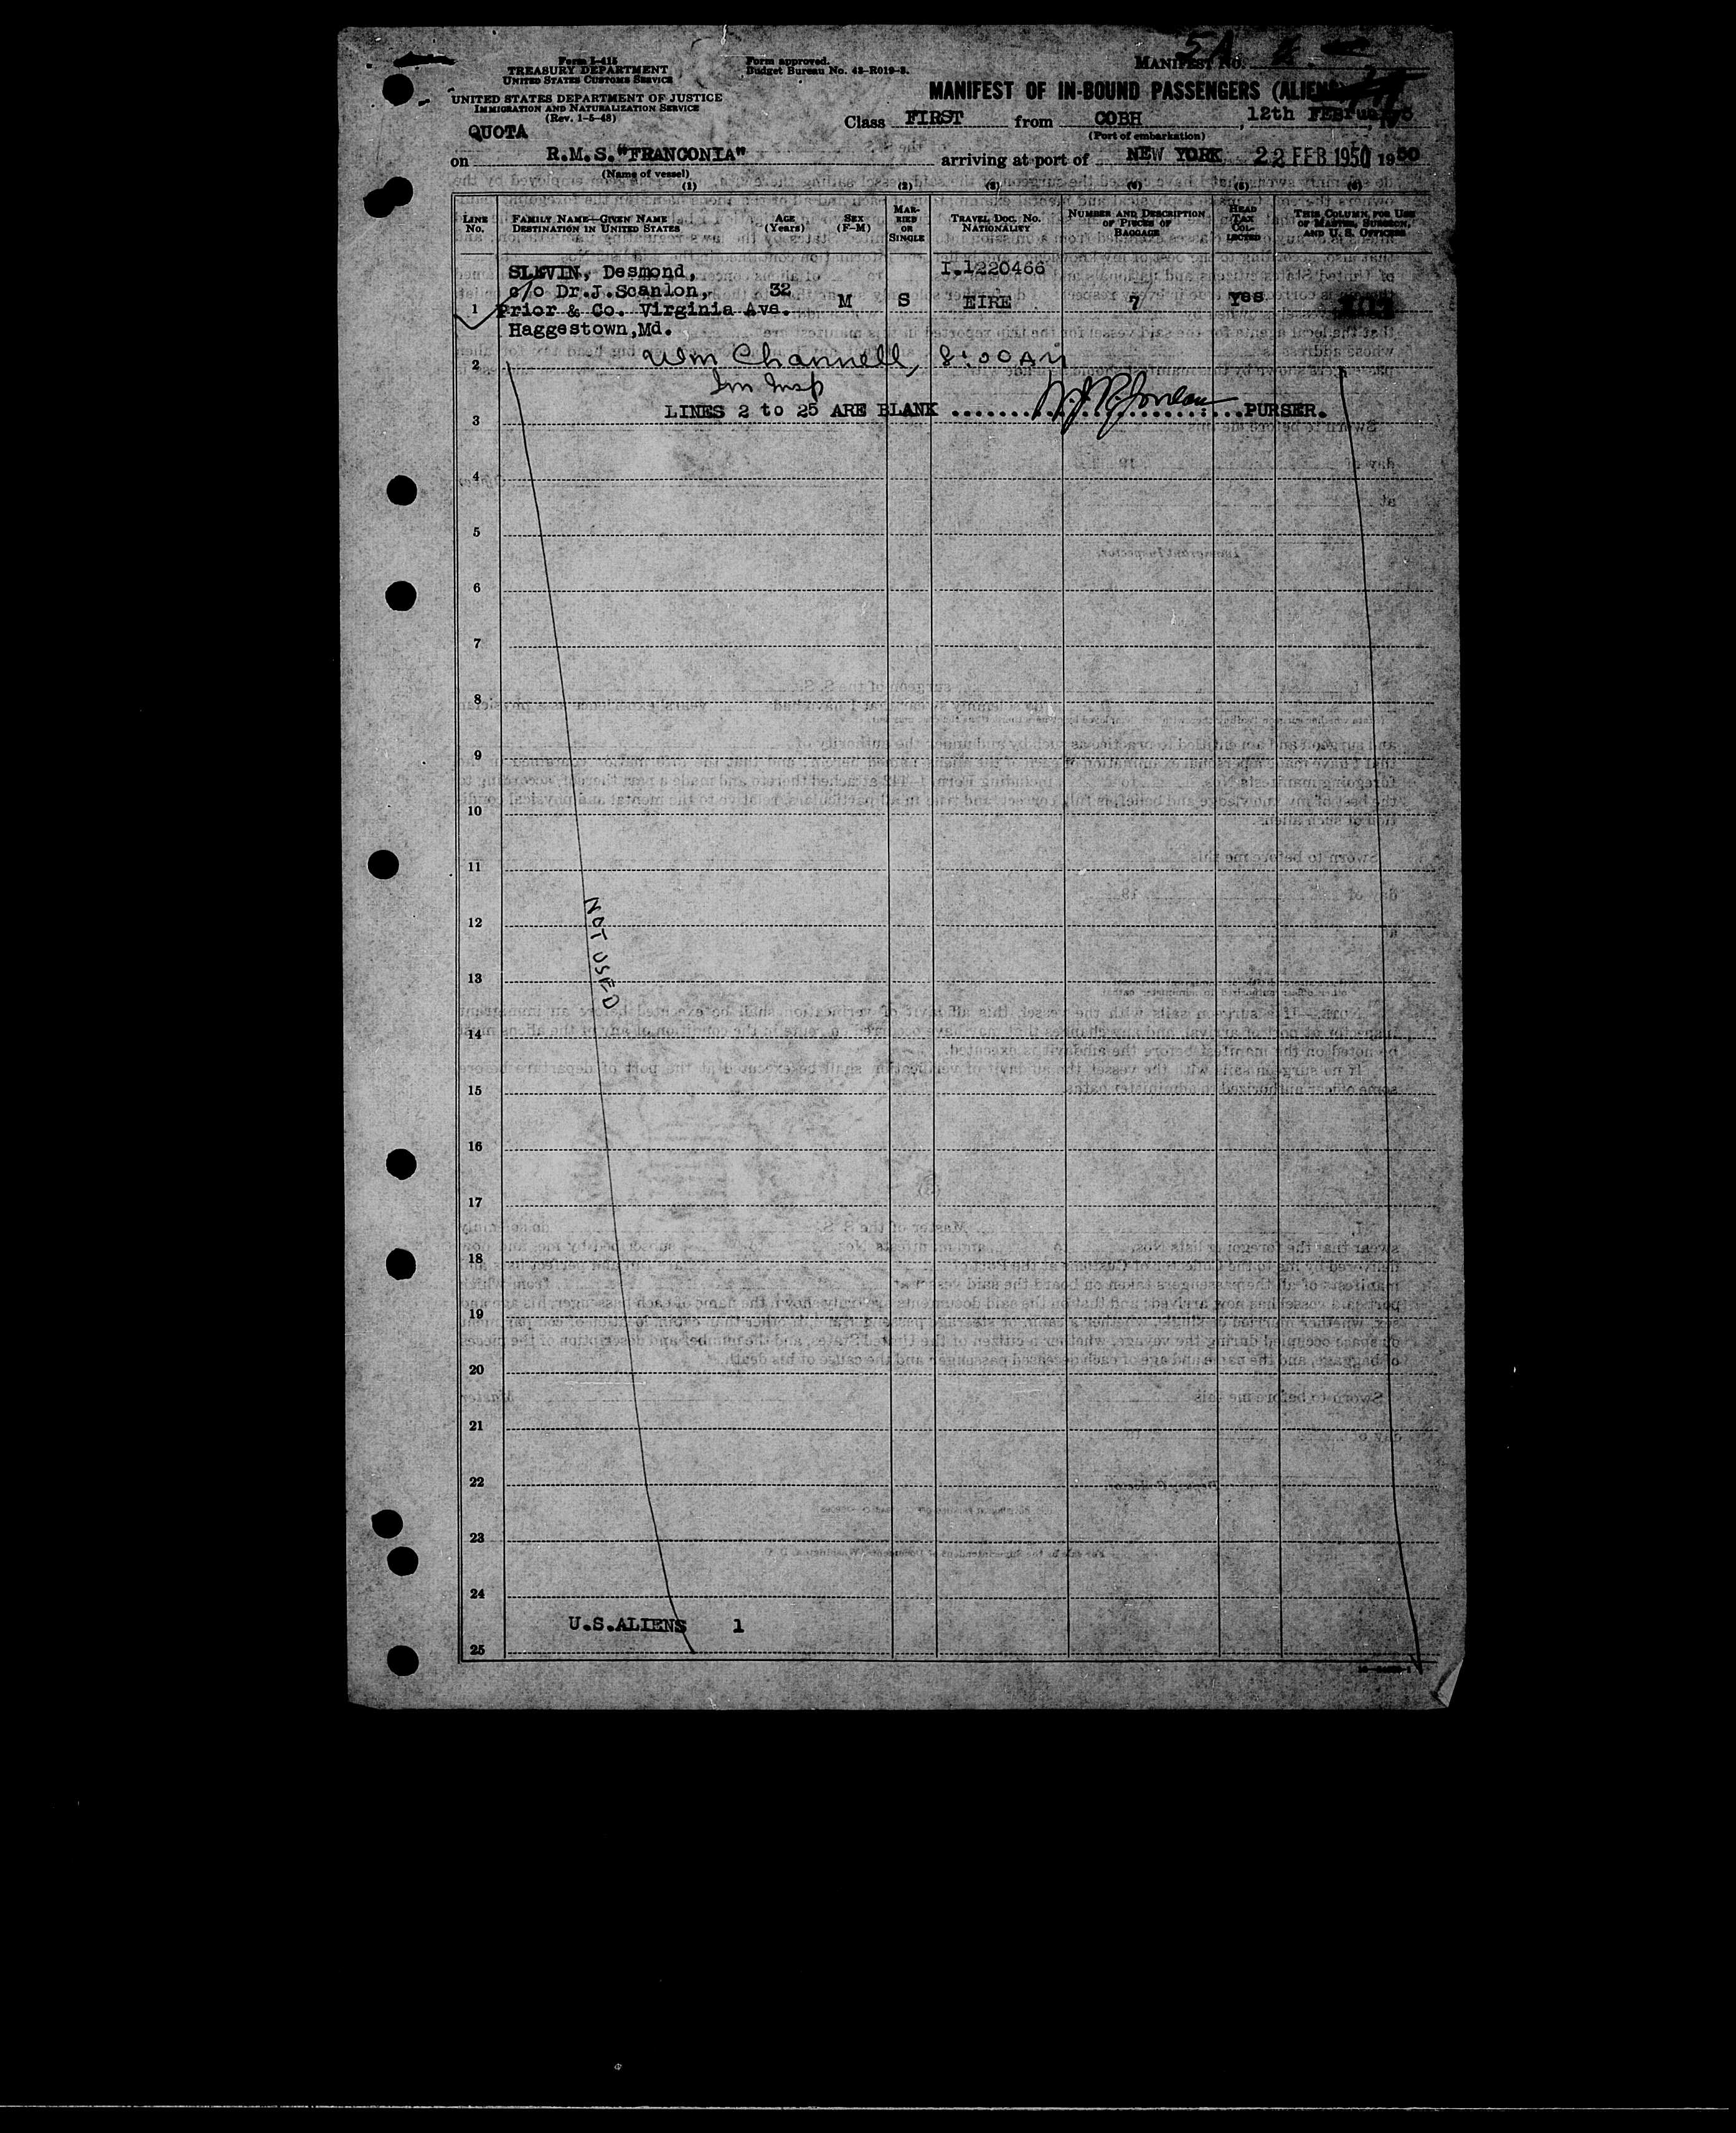 5A
Form I-415
TREASURY DEPARTMENT
UNITED STATES CUSTOMS SERVICE
UNITED STATES DEPARTMENT OF JUSTICE
IMMIGRATION AND NATURALIZATION SERVICE
(Rev. 1-5-48)
Form approved.
Budget Bureau No. 43-R019-3.
MANIFEST NO.
MANIFEST OF IN-BOUND PASSENGERS (ALIENS)
QUOTA
Class FIRST from COBH, 12th February
(Port of embarkation)
on R.M.S."FRANCONIA" arriving at port of NEW YORK 22 FEB 1950 1950
(Name of vessel)
(1) (2) (3) (4) (5) (6)
LINE NO.
FAMILY NAME—GIVEN NAME
DESTINATION IN UNITED STATES
AGE (Years)
SEX (F-M)
MARRIED OR SINGLE
TRAVEL DOC. NO. NATIONALITY
NUMBER AND DESCRIPTION OF PIECES OF BAGGAGE
HEAD TAX COLLECTED
THIS COLUMN FOR USE OF MASTER, SURGEON, AND U. S. OFFICERS
SLEVIN, Desmond, I.1220466
c/o Dr.J.Scanlon, 32
1 Prior & Co. Virginia Ave. M S EIRE 7 Yes
Haggestown,Md.
Wm Channell, 8:00AM
2
Im Insp
LINES 2 to 25 ARE BLANK ....................PURSER.
3
4
5
6
7
8
9
10
11
12
NOT USED
13
14
15
16
17
18
19
20
21
22
23
24
U.S.ALIENS 1
25